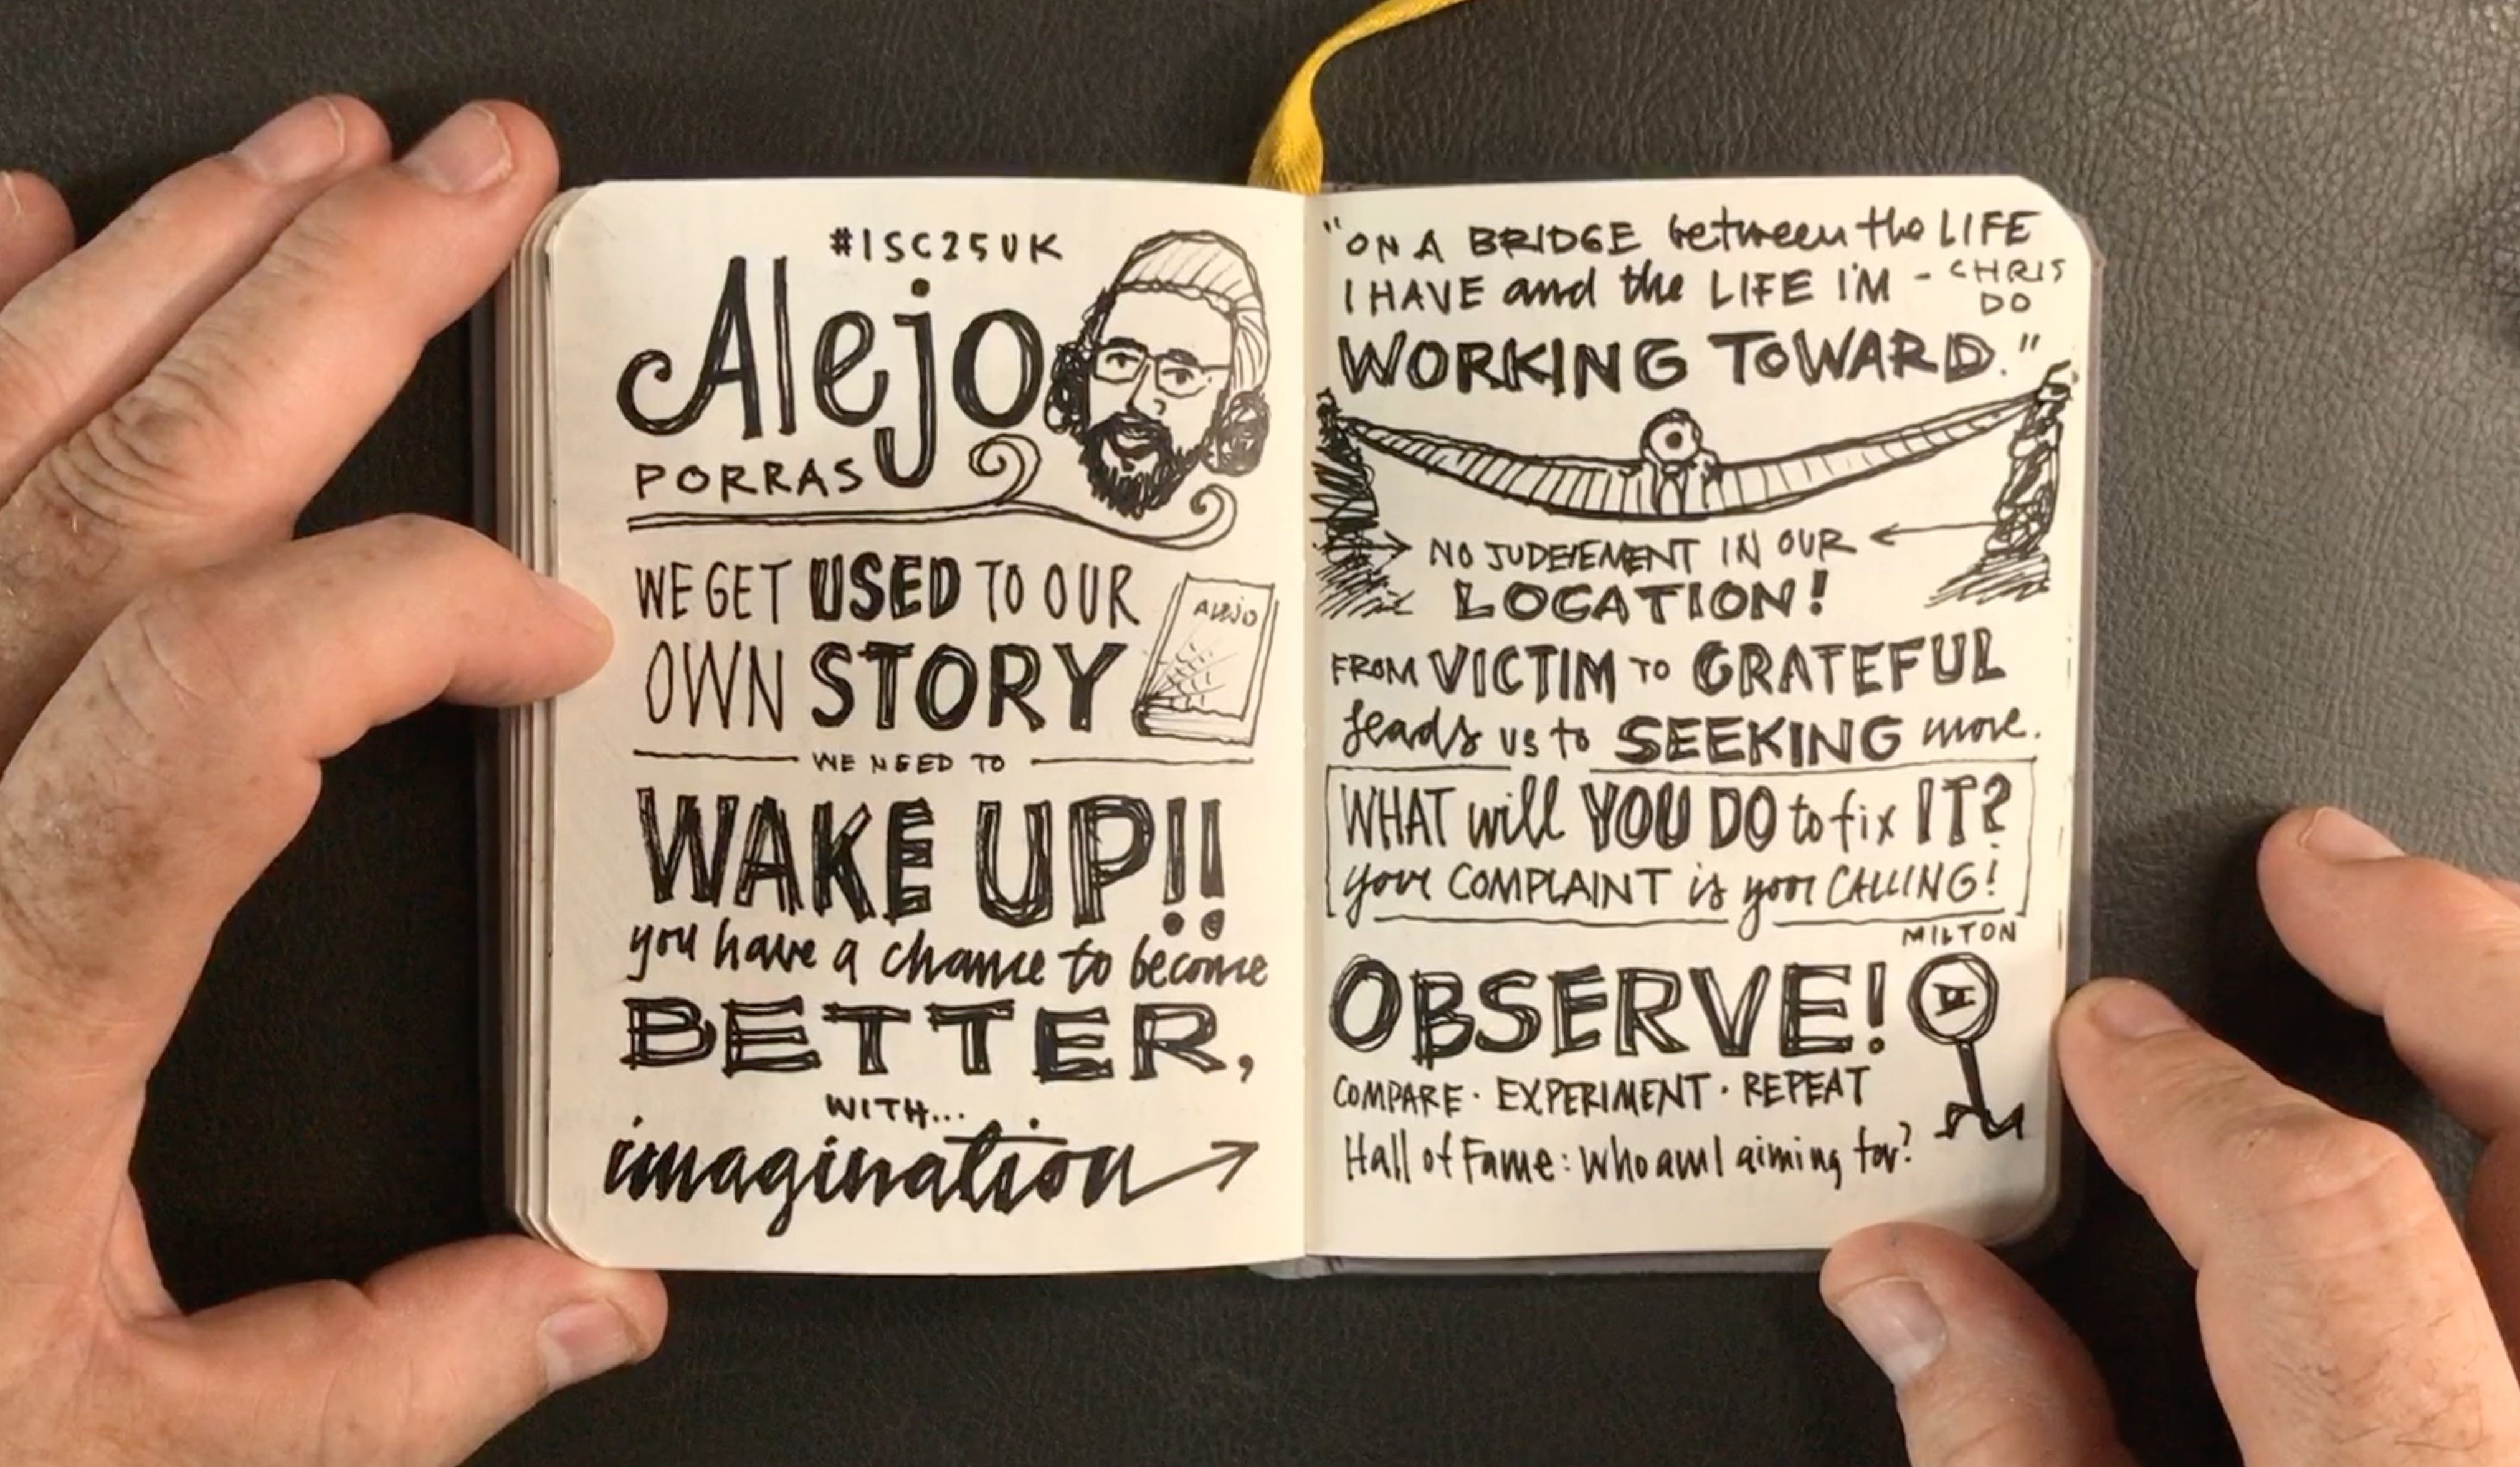 #ISC25UK
Alejo
PORRAS
WE GET USED TO OUR
OWN STORY
Alejo
WE NEED TO
WAKE UP!!
you have a chance to become
BETTER,
WITH...
imagination
"ON A BRIDGE between the LIFE
I HAVE and the LIFE I'M - CHRIS
DO
WORKING TOWARD."
NO JUDGEMENT IN OUR
LOCATION!
FROM VICTIM TO GRATEFUL
leads us to SEEKING more.
WHAT will YOU DO to fix IT?
your COMPLAINT is your CALLING!
MILTON
OBSERVE!
COMPARE · EXPERIMENT · REPEAT
Hall of Fame: who am I aiming for?